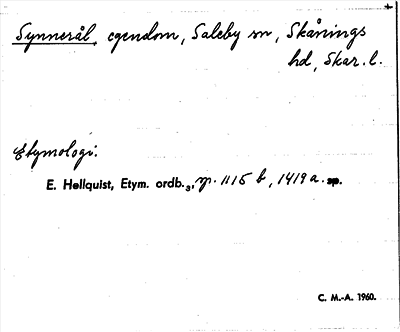 Synnerål, egendom, Saleby sn, Skånings
hd, Skar. l.
Etymologi:
E. Hellquist, Etym. ordb.3, p. 1115 b, 1419 a. sp.
C. M.-A. 1960.